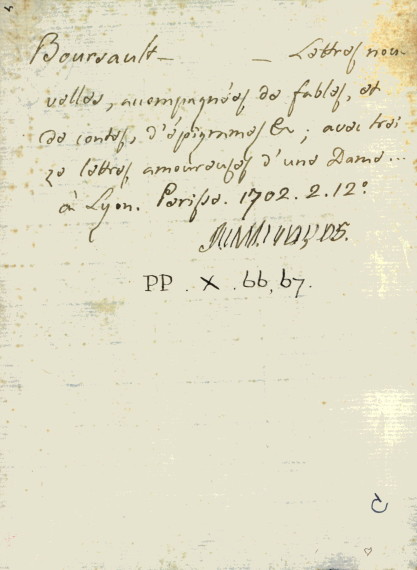 Boursault — — Lettres nou-
velles, accompagnées de fables, et
de contes, d'épigrames &c; avec trei
ze lettres amoureuses d'une Dame...
à Lyon. Parisse. 1702. 2. 12°
PP. X. 66, 67.